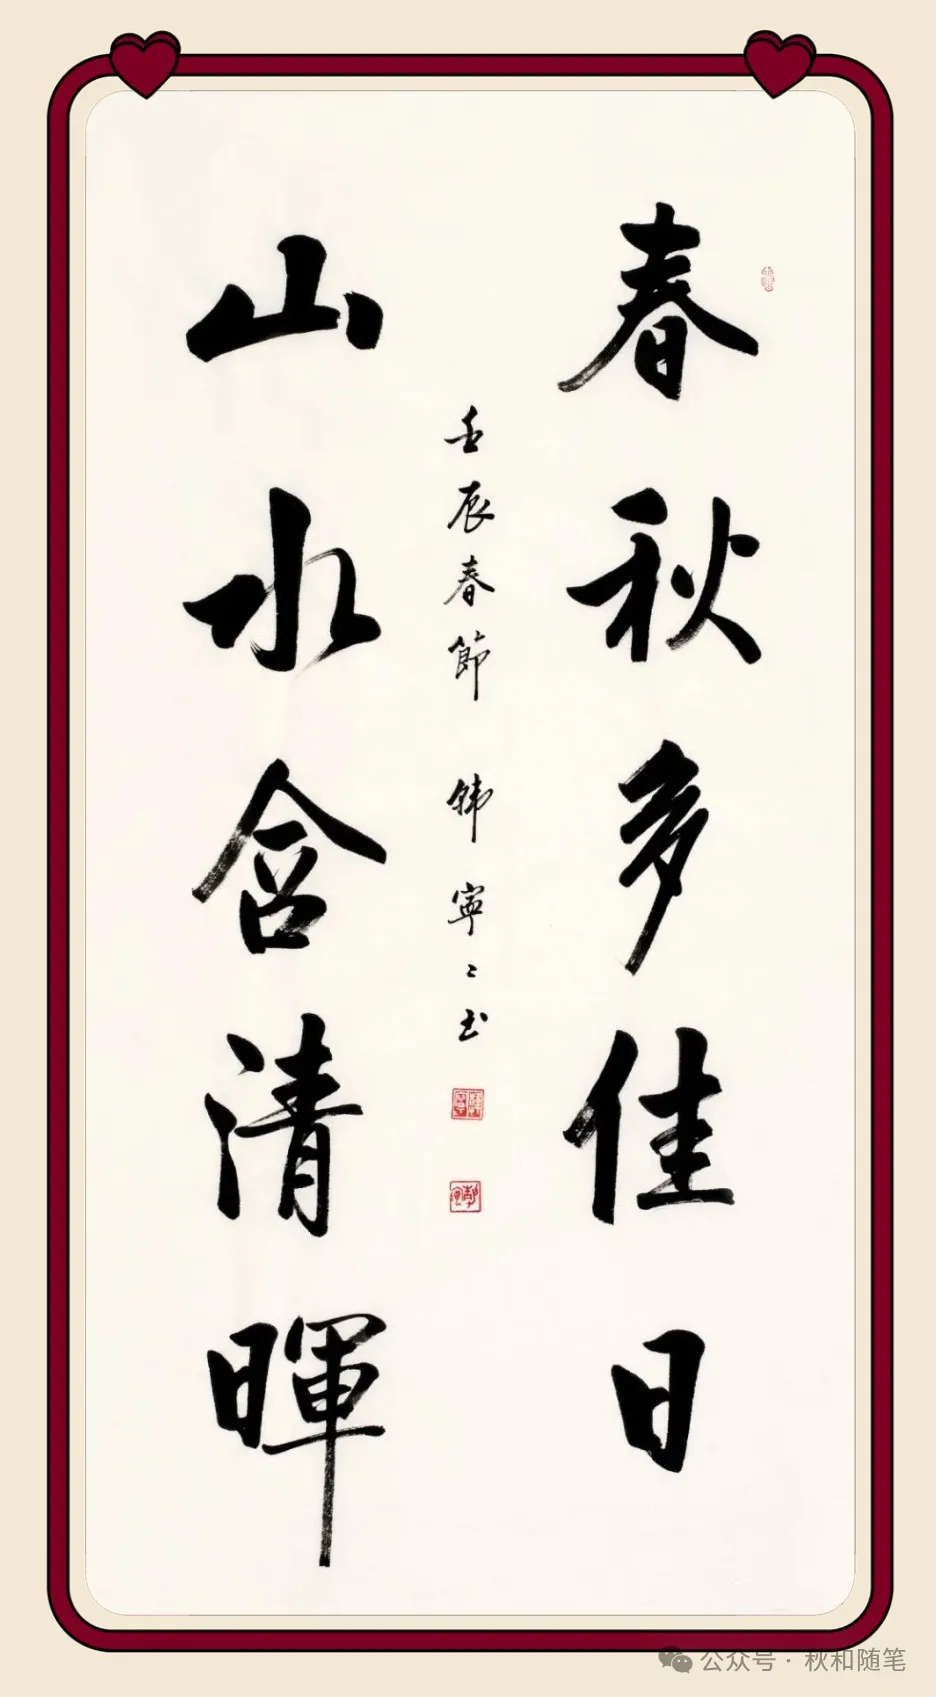 春秋多佳日
山水含清暉
壬辰春節 韩寧〻书
公众号 · 秋和随笔